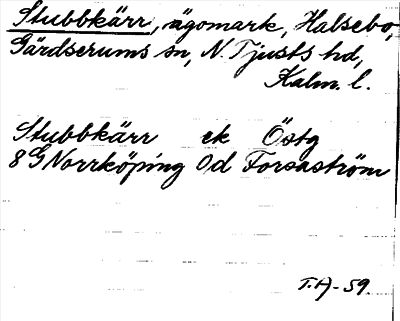 Stubbkärr, ägomark, Halsebo,
Gärdserums sn, N. Tjusts hd,
Kalm. l.
Stubbkärr ek Östg
8G Norrköping 0d Forsaström
T.A-59.